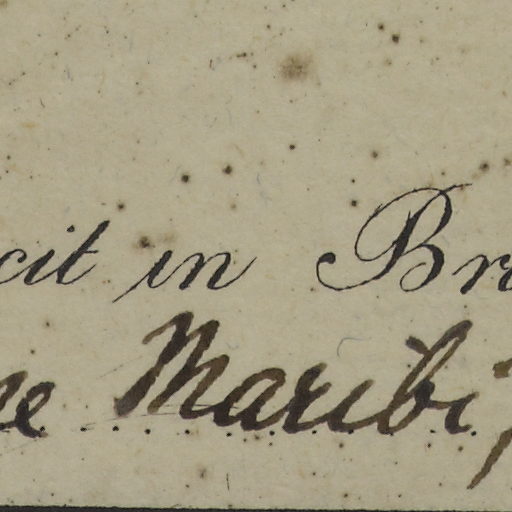 cit in Br
ne Maribi